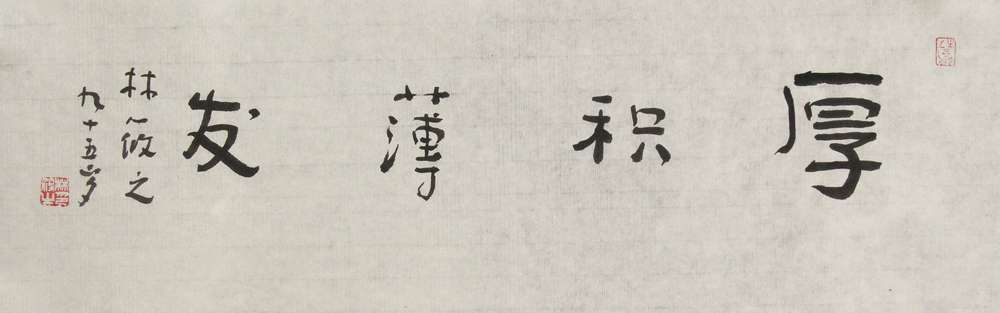 厚积薄发
林筱之
九十五岁